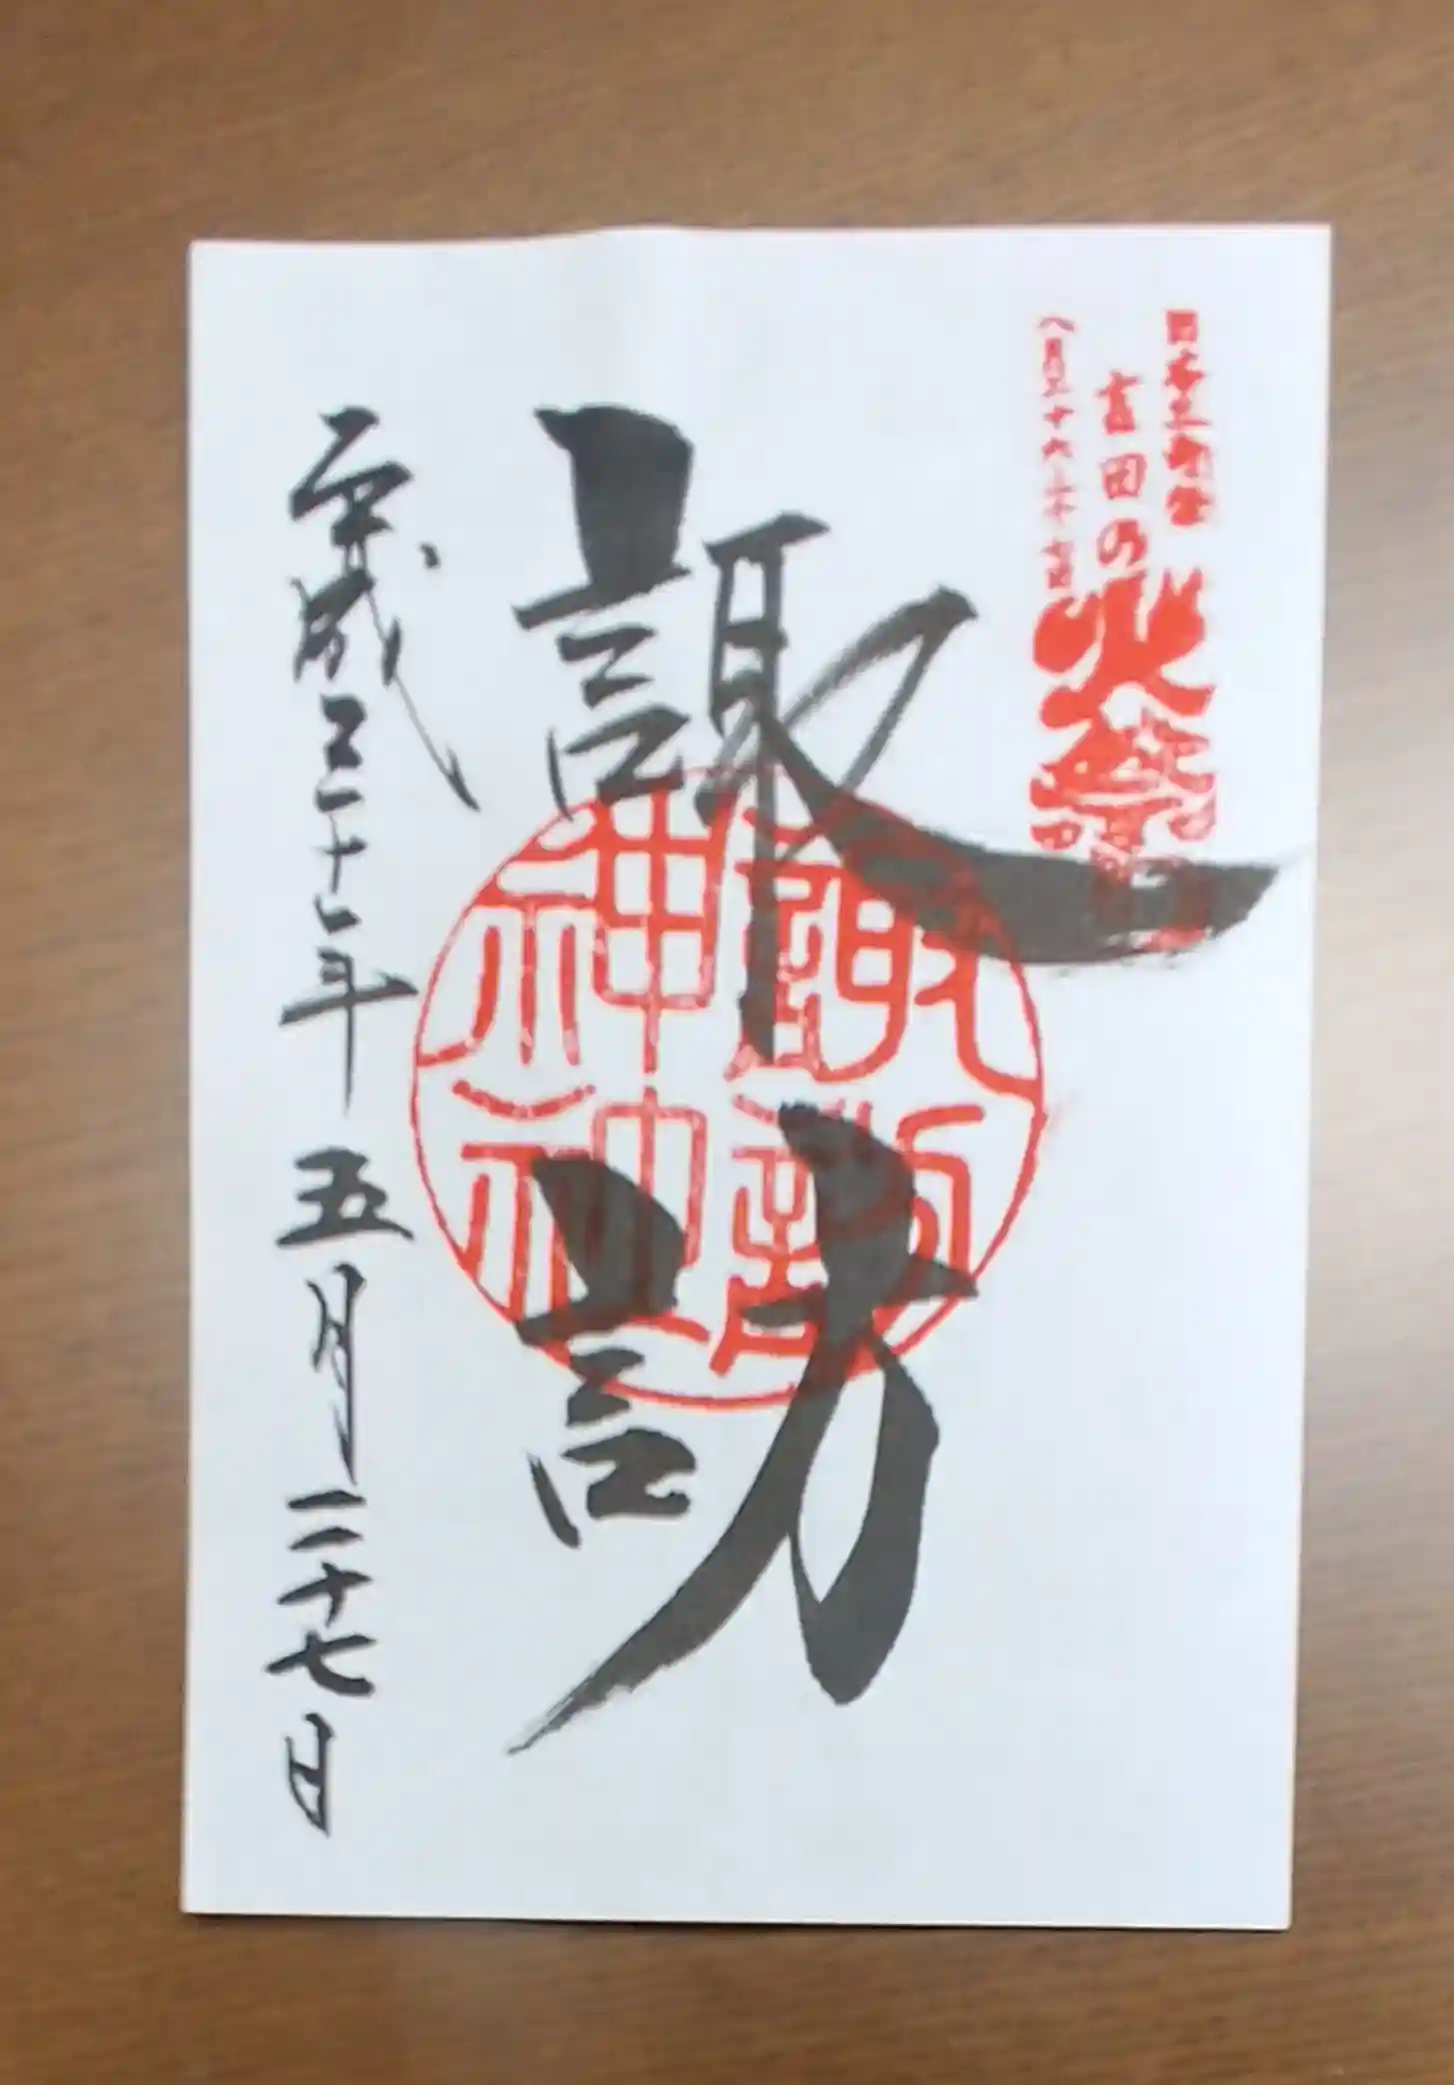 日本三奇祭
吉田の火祭
八月二十六・二十七日
諏訪
諏訪
神社
平成三十年五月二十七日